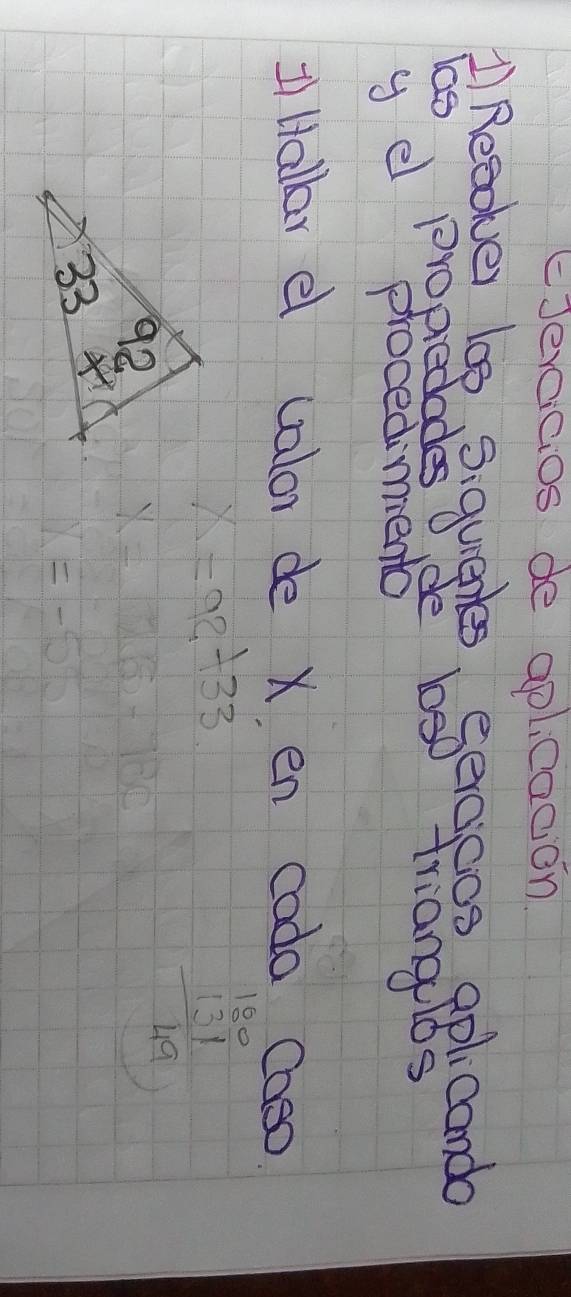 Ejercicios de aplicación
1) Resolver los siguientes ejercicios aplicando
las propiedades de los triangulos
y el procedimiento
1) Hallar el valor de X en cada caso
92
33 x
X = 92+33
X =
X = -55
180
131
49